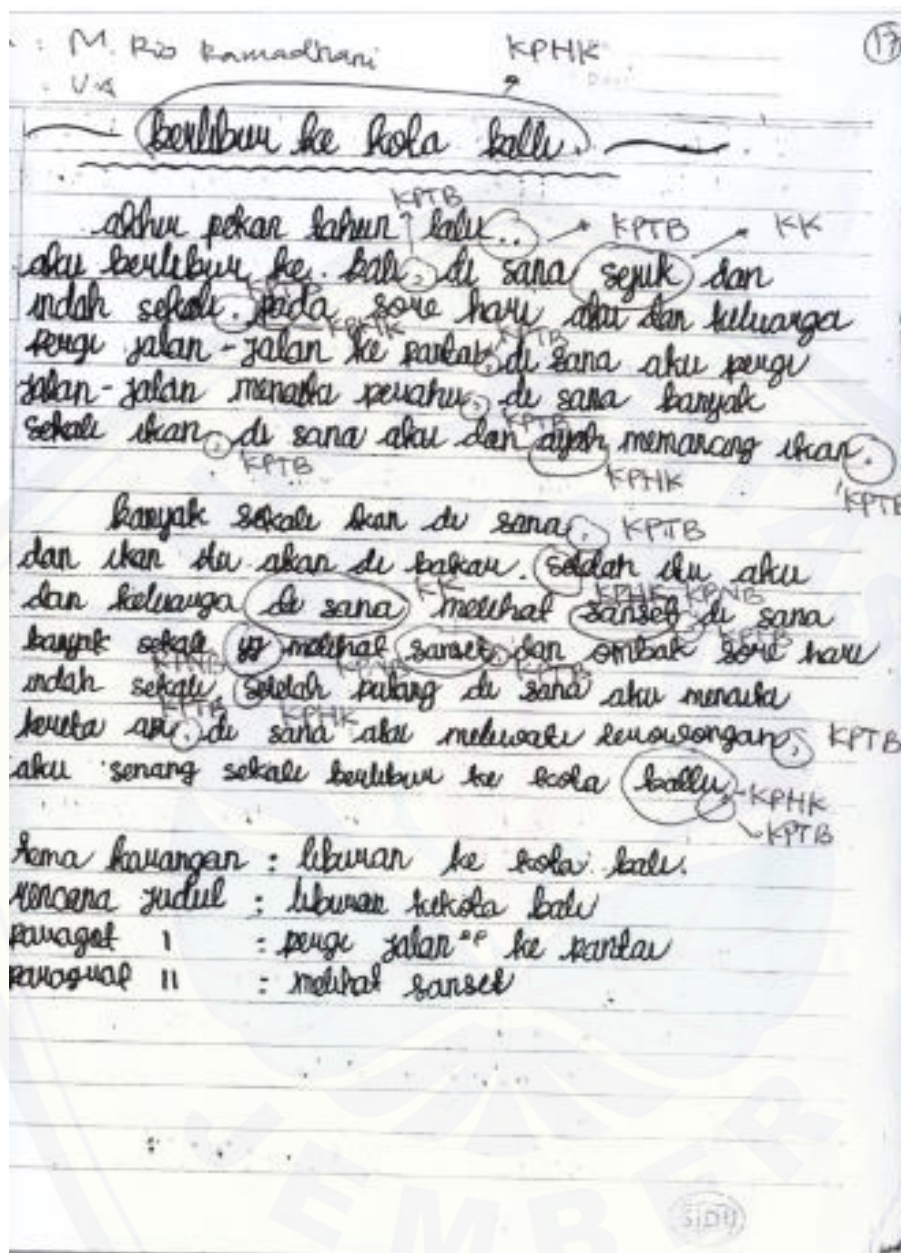 : M. Rio Ramadhani KPHK 17
: V A
berlibur ke kota balli.
KPTB
akhir pekan tahun lalu.. KPTB KK
aku berlibur ke. bali, di sana sejuk dan
KPTB
indah sekali. pada sore hari aku dan keluarga
KPHK KPTB
pergi jalan-jalan ke pantai, di sana aku pergi
jalan-jalan menaika perahu, di sana banyak
KPTB
sekali ikan, di sana aku dan ayah memancing ikan.
KPTB KPHK KPTB
banyak sekali ikan di sana. KPTB
dan ikan itu akan di bakar. setelah itu aku
KK KPHK KPNB
dan keluarga di sana melihat sanset di sana
KPTB
banyak sekali yg melihat sanset, dan ombak sore hari
KPNB KPNB KPTB
indah sekali. setelah pulang di sana aku menaika
KPTB KPHK
kereta api, di sana aku melewati terowongan, KPTB
aku senang sekali berlibur ke kota balli.
KPHK
KPTB
tema karangan : liburan ke kota bali.
rencana judul : liburan kekota bali
paragaf I : pergi jalan" ke pantai
paragraf II : melihat sanset
JEMBER
SIDU